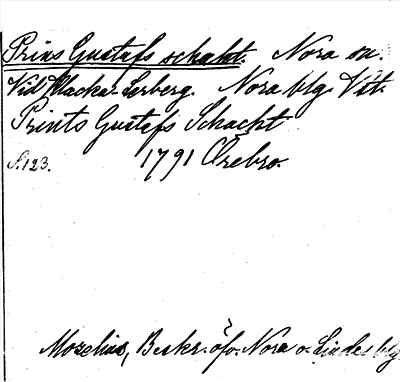 Prins Gustafs schakt. Nora sn.
Vid Klacka-Lerberg. Nora blg. Vst.
Prints Gustafs Schacht
S.123. 1791 Örebro.
Mozelius, Beskr. öfv. Nora o. Lindes blg.